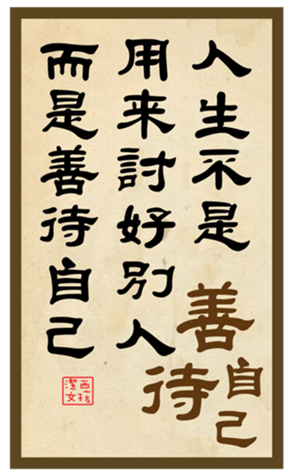 人生不是
用来討好別人
而是善待自己
善待自己